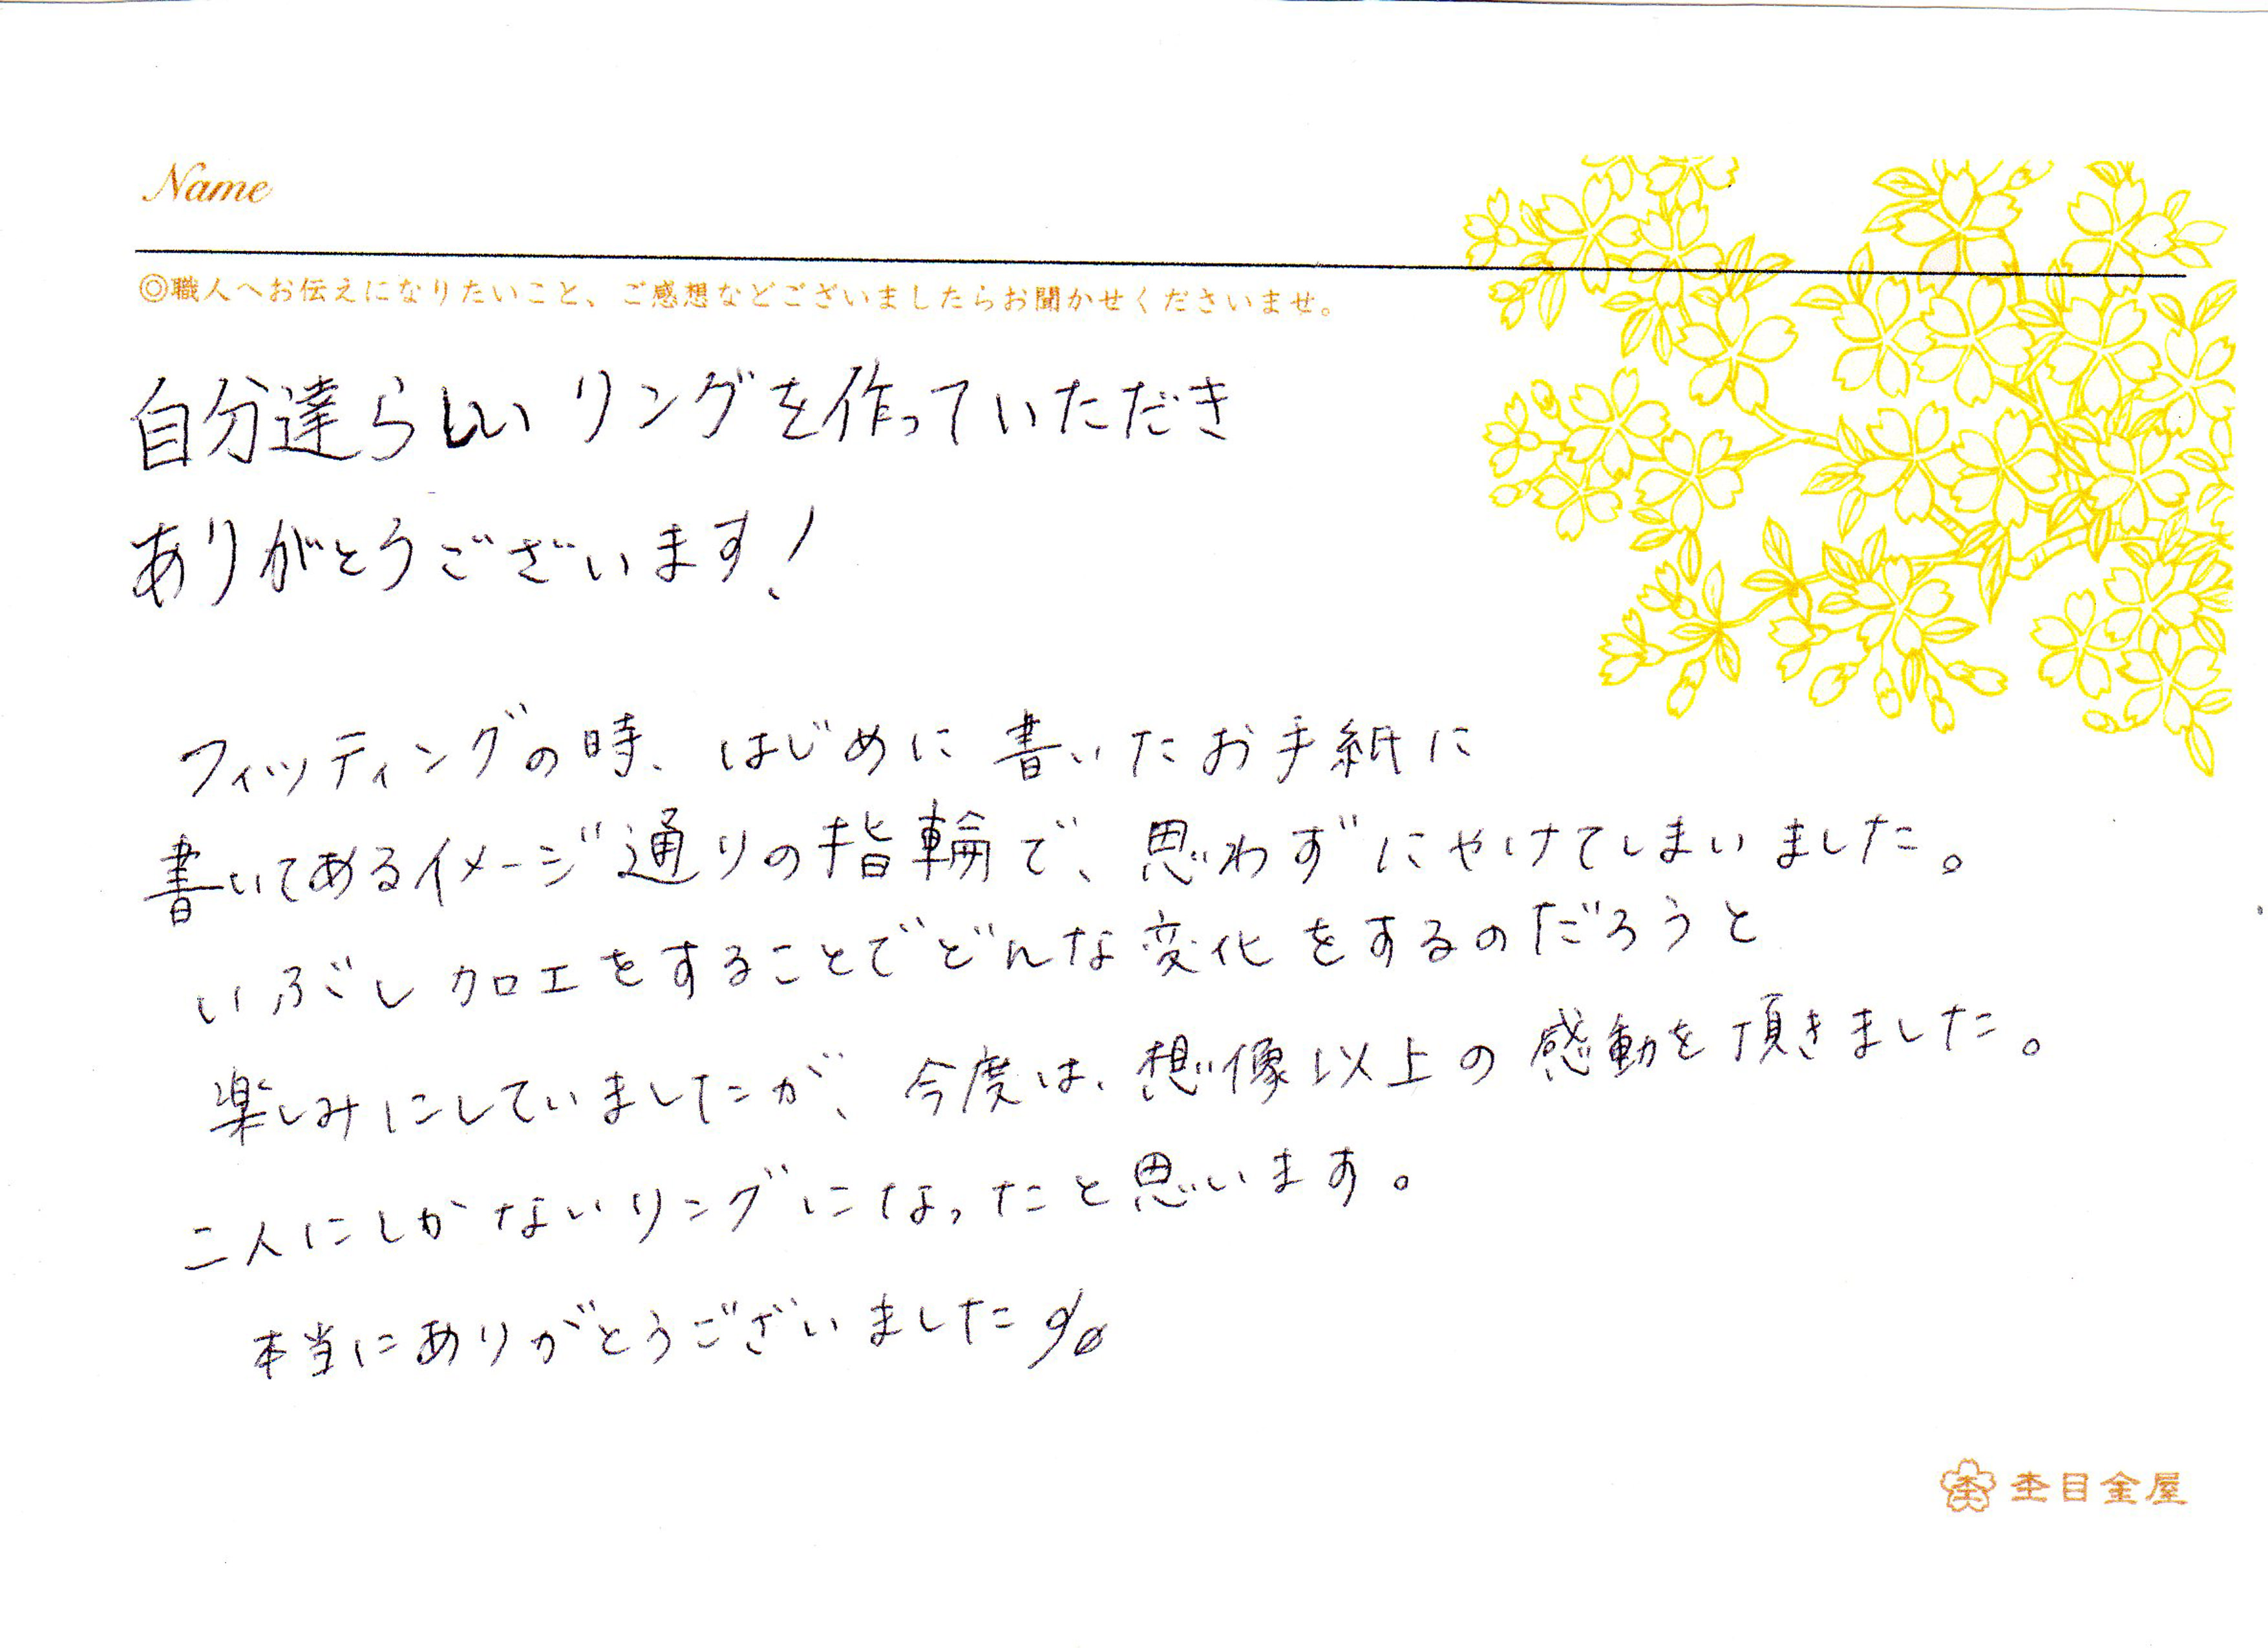 Name
◎職人へお伝えになりたいこと、ご感想などございましたらお聞かせくださいませ。
自分達らしいリングを作っていただき
ありがとうございます!
フィッティングの時、はじめに書いたお手紙に
書いてあるイメージ通りの指輪で、思わずにやけてしまいました。
いぶし加工をすることでどんな変化をするのだろうと
楽しみにしていましたが、今度は、想像以上の感動を頂きました。
二人にしかないリングになったと思います。
本当にありがとうございました!!
杢目金屋